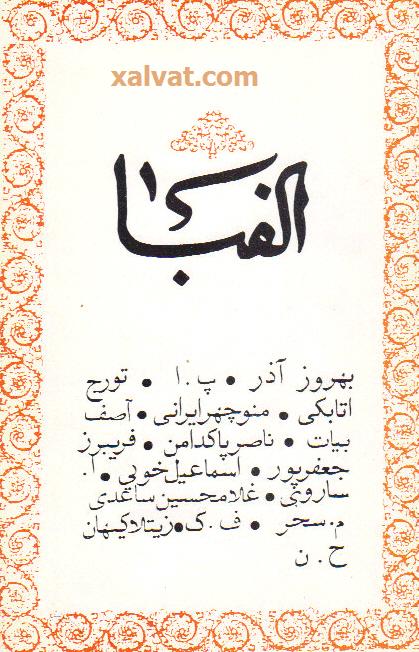 xalvat.com
الفبا
بهروز آذر • پ.ا • تورج
اتابکی • منوچهرایرانی • آصف
بیات • ناصرپاکدامن • فریبرز
جعفرپور • اسماعیل‌خویی • ا.
ساروقی • غلامحسین ساعدی
م.سحر • ف.ک • زیتلاکیهان
ح.ن